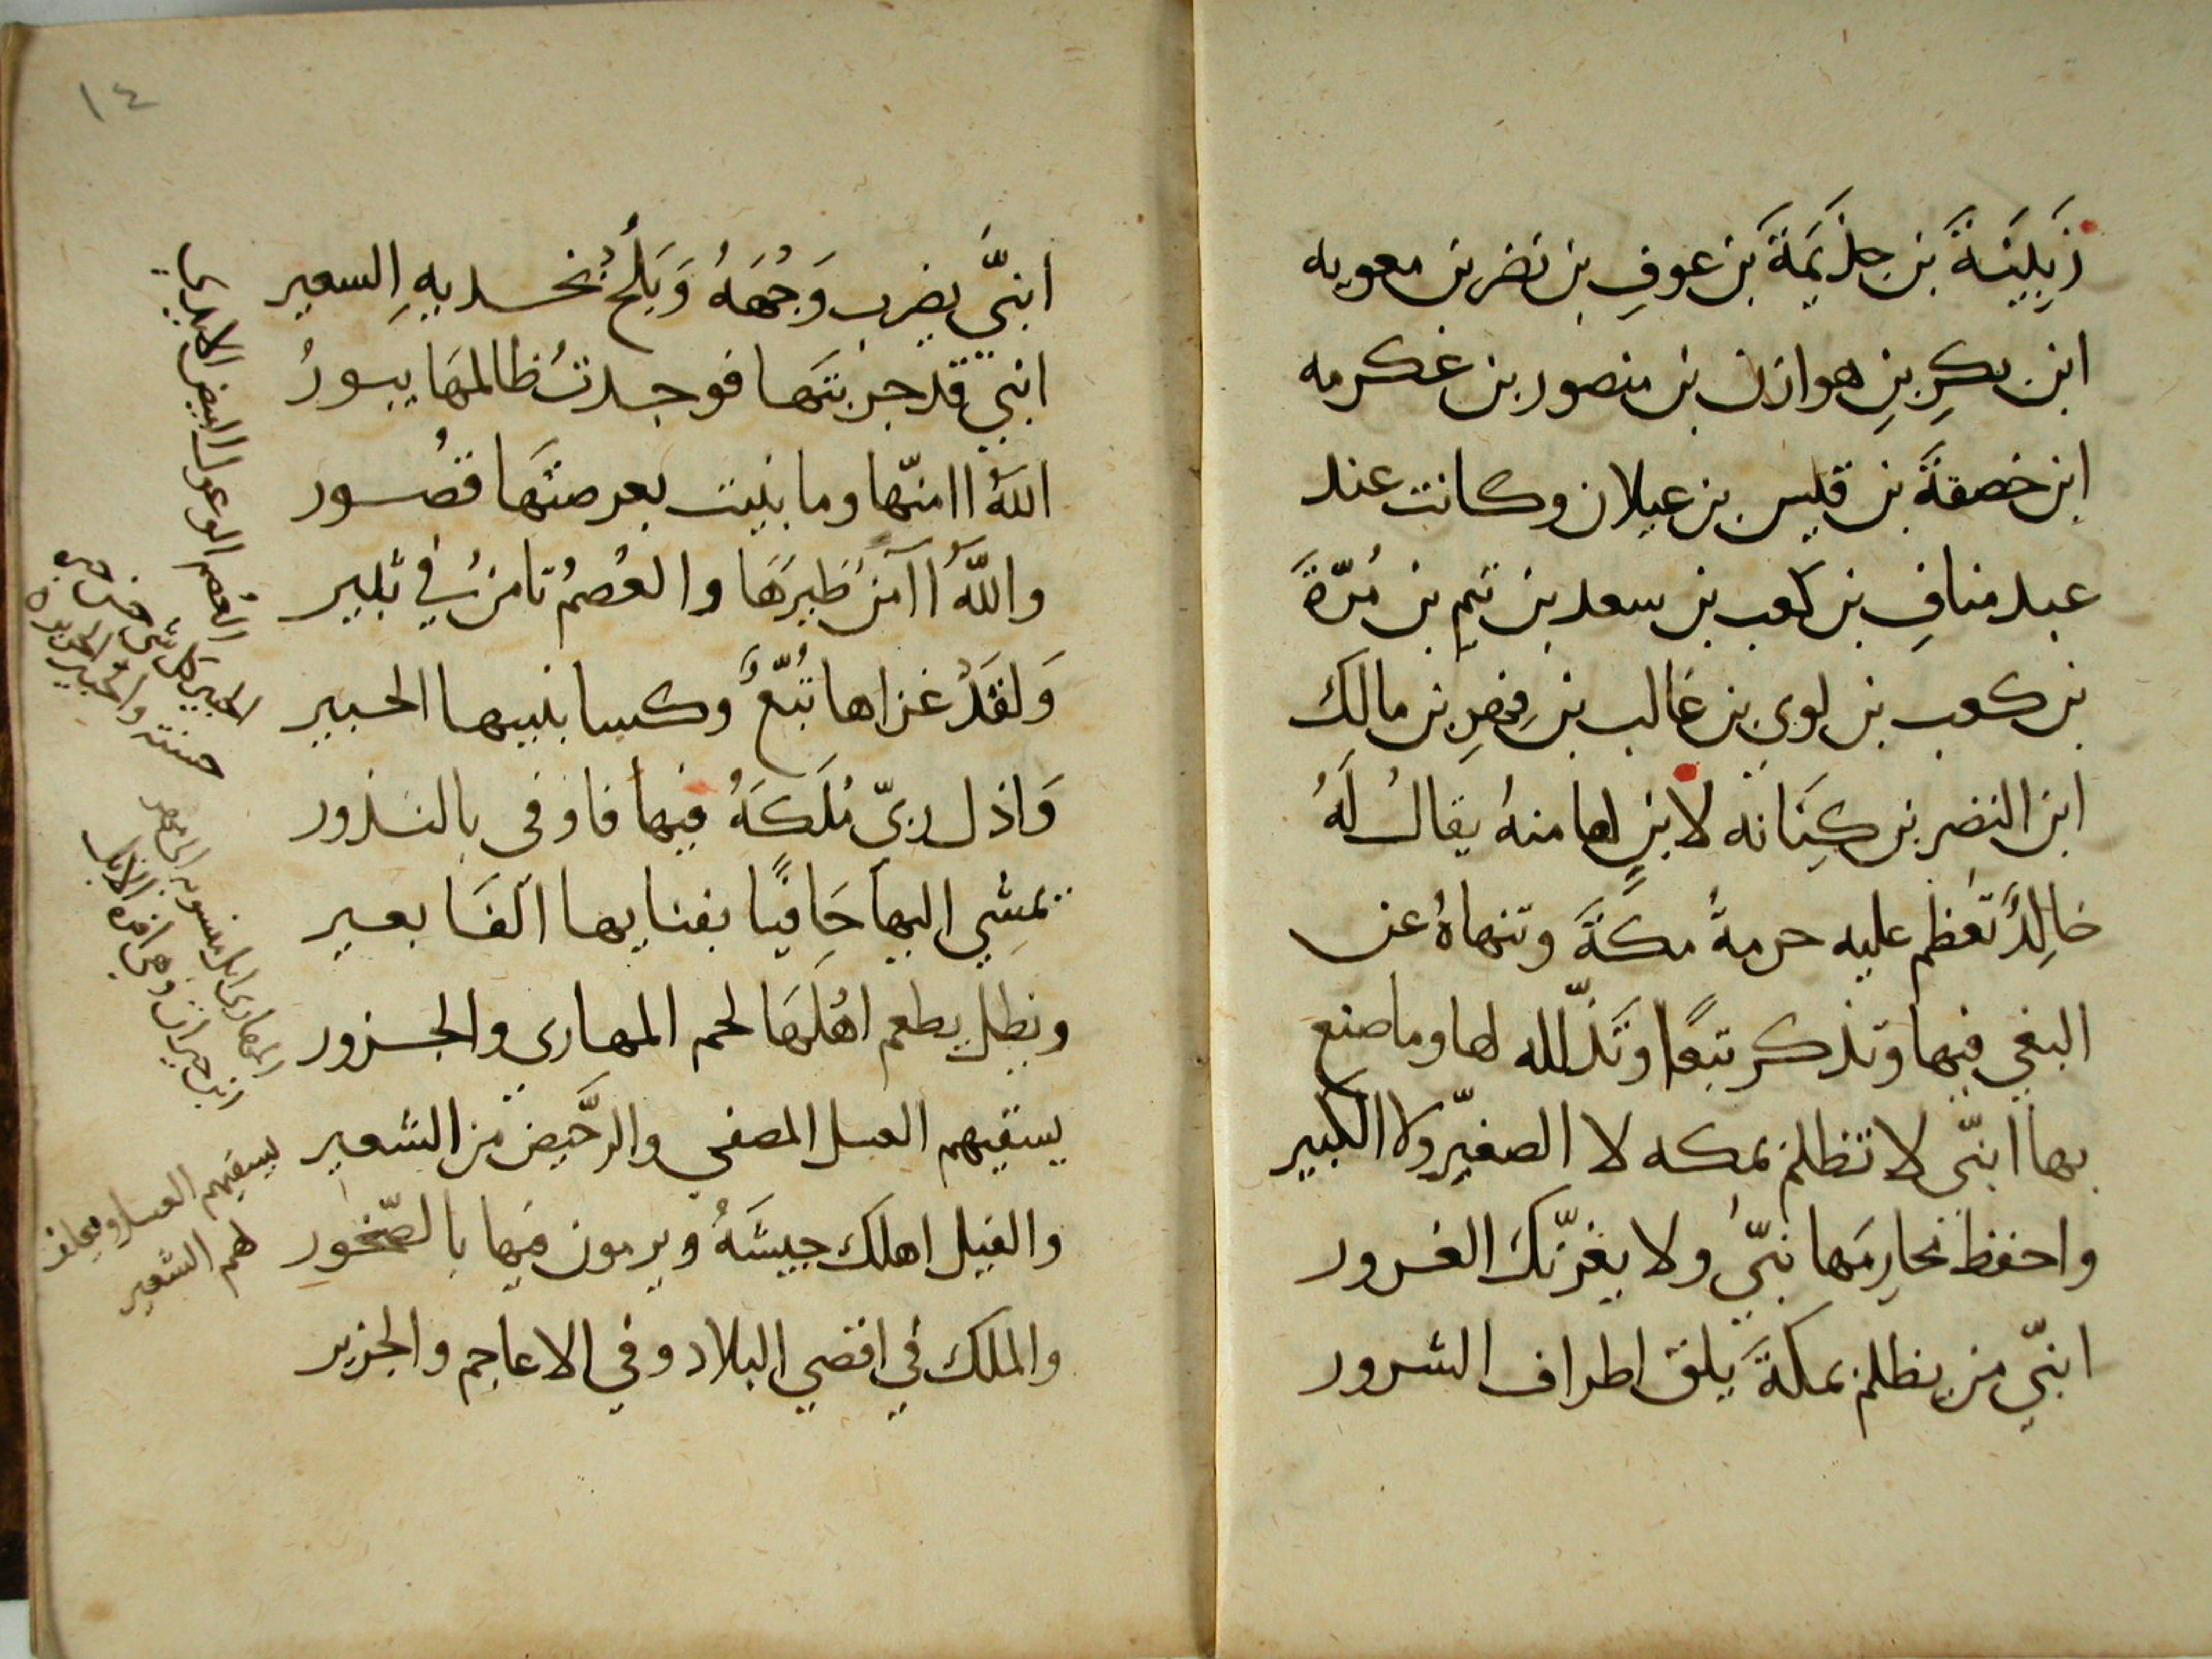 زَبِيْنَةَ بن جذَيمَةَ بن عوفِ بن نضر بن معويه
ابن بكرِ بنِ هوازن بن منصور بن عكرمه
ابن خصفةَ بن قيس بن عيلان وكانت عند
عبد منافِ بن كعب بن سعد بن تيم بن مُرّةَ
بن كعب بن لوي بن غالب بن فِهرِ بن مالك
ابن النضر بن كِنَانه لابنٍ لها منهُ يقالُ لَهُ
خالِدٌ تعظم عليه حرمةُ مكةَ وتنهاهُ عن
البغي فيها وتذكر تبعًا وتَذَلّلله لها وما صنع
بها ابنّي لا تظلم بمكه لا الصغيّر ولا الكبير
واحفظ محارِمَها بنّي ولا يغرّنك الغرور
ابنّي من يظلم بمكةَ يلق اطراف الشرور
ابنّي يضرب وَجْهَهُ وَيَلُحْ بخديهِ السعير
ابنّي قد جربتها فوجدتُ ظالمهَا يبورُ
اللهُ اامنّها وما بنيت بعرصتهَا قصُور
واللّهُ اآمنَ طَيرَهَا والعُصْمُ تامنُ في ثبير
وَلقَدْ غزاها تُبّعٌ وكسا بنيها الحبير
وَاذل ربّي مُلكَهُ فيها فاوفى بالنذور
يمشِي اليها حَافيًا بفنايها آلفَا بعير
ويظل يطعم اهْلَهَا لحم المهاري والجزور
يسقيهم العسل المصفي والرَّحيض من الشعير
والفيل اهلك جيشَهُ ويرمون فيها بالصّخور
والملك في اقصي البلاد وفي الاعاجم والجزير
١٤
العُصم الوعول البيض الايدي
الحبير كل شي حسن
المهاري ابل منسوبه الى مهره
ابن حيدان وهي افره الابل
يسقيهم العسل ويعلف
لهم الشعير